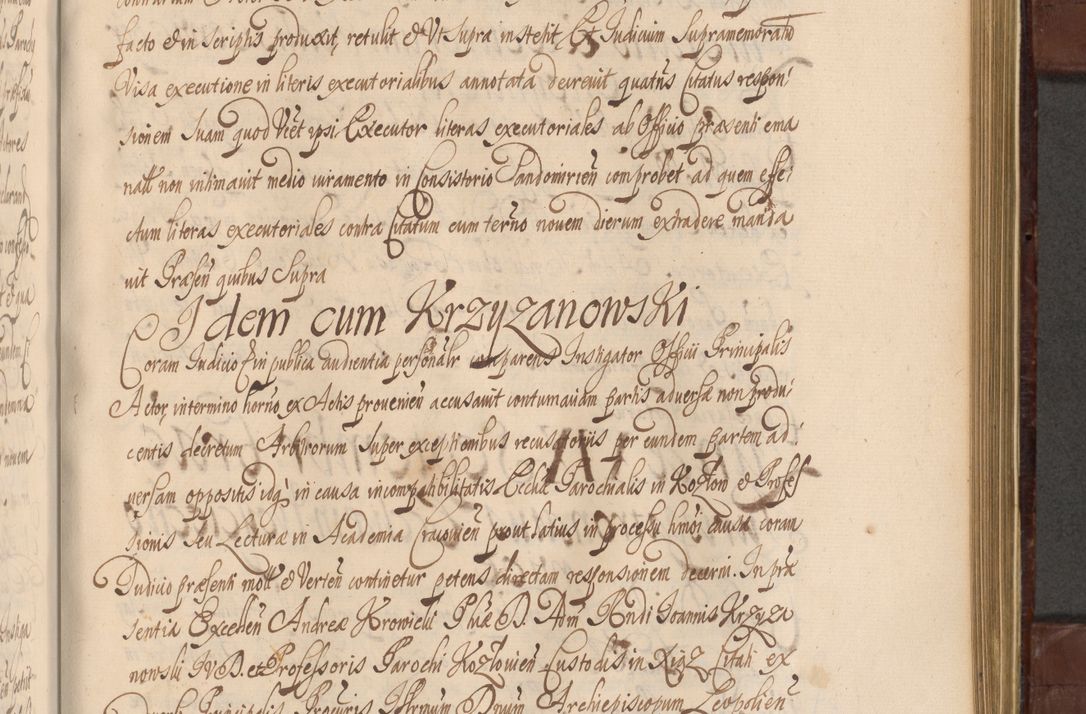 facto et in scriptis produxit, retulit et Ut supra institit, Et Iudicium Supramemoratū
Visa executione in literis executorialibus annotata decrevit quatn̄s Citatus respon:
sionem suam quod Vcet ipsi Executor literas executoriales ab Officio præsenti ema
natt non intimavit medio iuramento in Consistorio Sandomirien̄ comprobet ad quem effe:
ctum literas executoriales contra Citatum cum tern̄o novem dierum extradere manda
vit Præsen̄ quibus Supra
Idem cum Krzyzanowski
Coram Iudicio Et in publica audientia personalr comparens Instigator Officii Principalis
Actor, in termino horno ex Actis provenien̄ accusavit contumaciam partis adversæ non produ:
centis decretum Arbitrorum super exceptionibus recusatoriis per eundem partem ad:
versam oppositis idq; in causa incompatibilitatis Ecclīæ Parochialis in Kozłow et Profes
sionis seu Lecturæ in Academia Cracovien̄ prout latius in processu hm̄oi causæ coram
Iudicio præsenti mott et Verten̄ continetur petens directam responsionem decerni. In præ
sentia Excellen̄ Andreæ Krowicki Phīæ D. Adm̄ Rn̄di Ioannis Krzyza
nowski IVD. et Professoris Parochi Kozłovien̄ Custodis in Xiąż Citati ex
Principalis Procuris Illrmum Dnum Archiepiscopum Leopolien̄